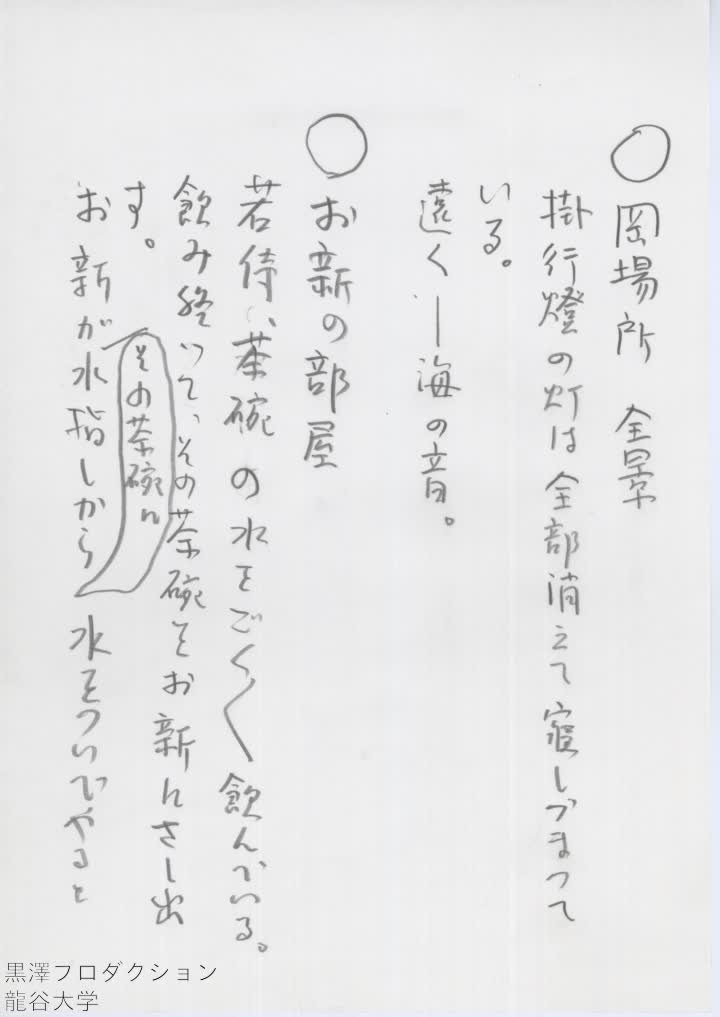 ○岡場所 全景
掛行燈の灯は全部消えて寝しづまつて
いる。
遠く—海の音。
○お新の部屋
若侍、茶碗の水をごく〱飲んでいる。
飲み終つて、その茶碗をお新にさし出
す。
お新が水指しからその茶碗に水をついでやると
黒澤プロダクション
龍谷大学